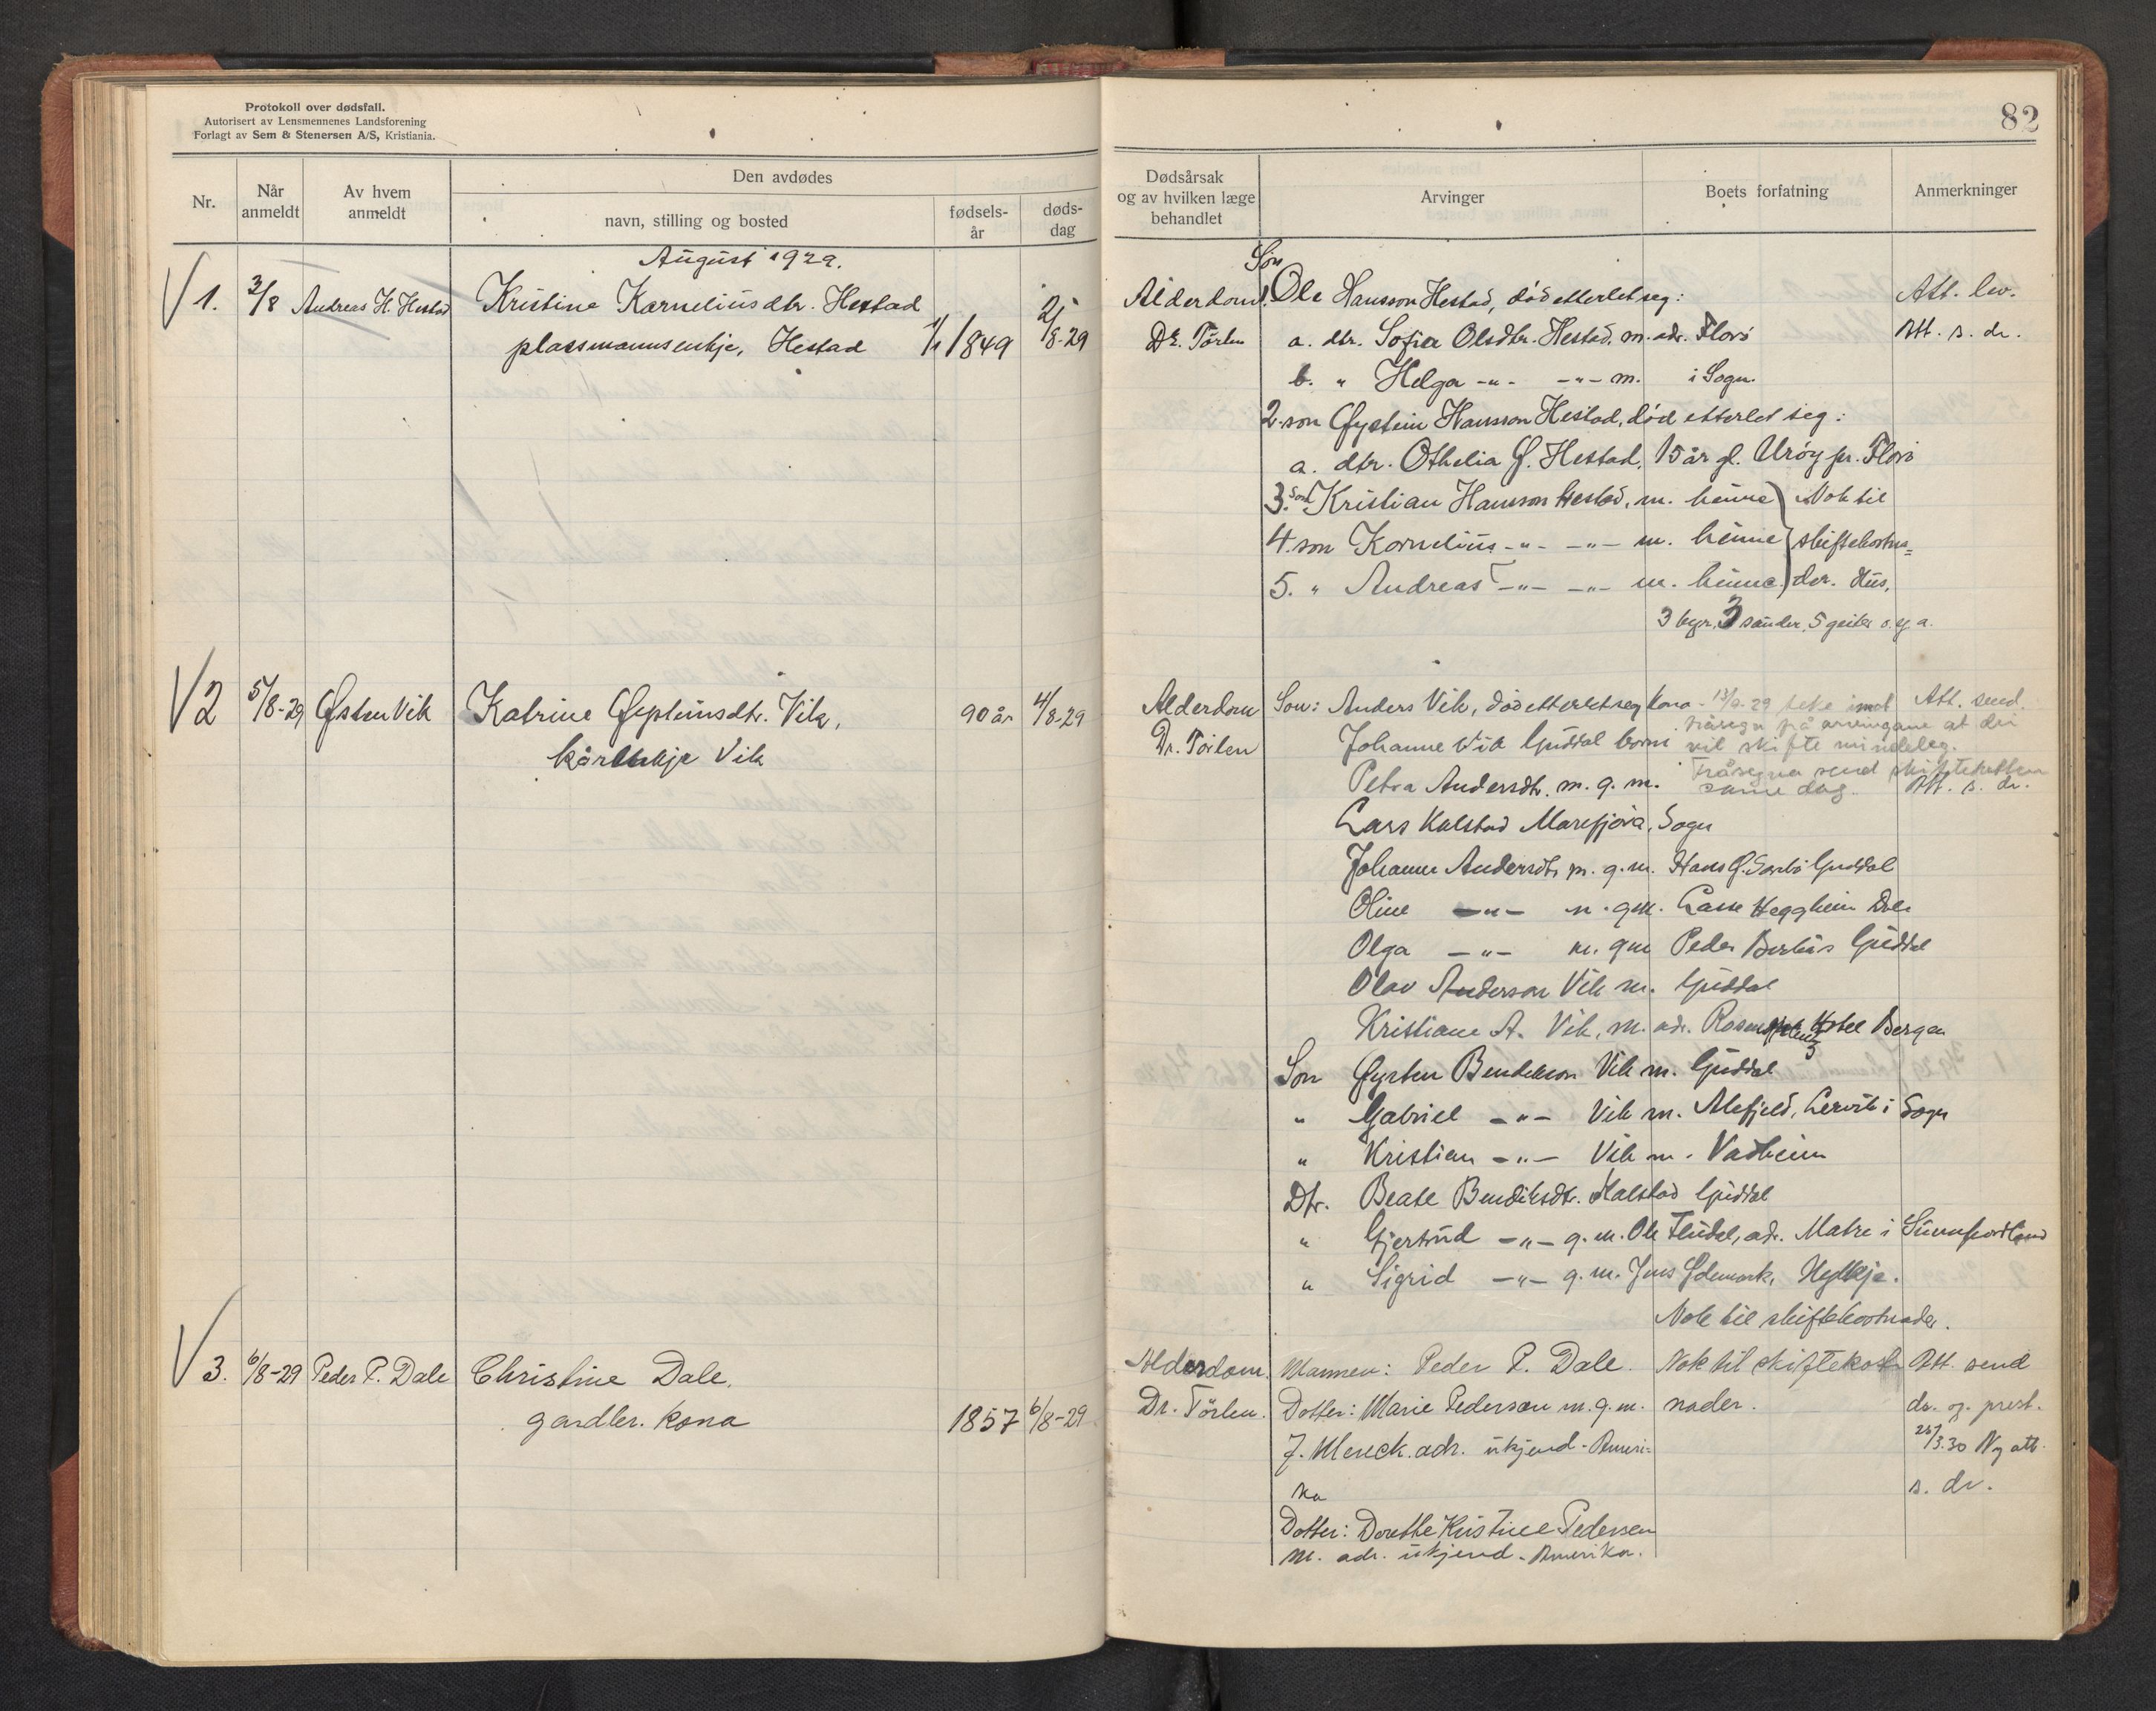 Protokoll over dødsfall.
Autorisert av Lensmennenes Landsforening
Forlagt av Sem & Stenersen A/S, Kristiania.
82
Nr.
Når anmeldt
Av hvem anmeldt
Den avdødes
navn, stilling og bosted
fødsels-år
døds-dag
Dødsårsak og av hvilken læge behandlet
Arvinger
Boets forfatning
Anmerkninger
August 1929.
1. 3/8 Andreas H. Hestad Kristine Karneliusdtr. Hestad 2/8-29
plassmannsenkje, Hestad 1/1 1849
Alderdom. Son Ole Hansson Hestad, død etterlet seg: Att. lev.
Dr. Törlen a. dtr. Sofia Olsdtr. Hestad. m. adr. Florö Att. s. dr.
b. " Helga -"- -"- m. i Sogn.
2. son Øystein Hansson Hestad, död etterlet seg:
a. dtr. Othelia Ø. Hestad, 15 år gl. Uröy pr. Florö
3. son Kristian Hansson Hestad, m. heime Nok til
4. son Kornelius -"- -"- m. heime skiftekostna=
5. " Andreas -"- -"- m. heime der. Hus,
3 kyr, 3 sauder, 5 geiter o. g. a.
2 5/8-29 Østen Vik Katrine Øysteinsdtr. Vik, 90 år 4/8-29
kårenkje Vik
Alderdom Son: Anders Vik, död etterlet seg kona - 13/9-29 teke imot Att. send.
fråsegn på arvingane at dei
Dr. Törlen Johanne Vik Guddal born vil skifte mindeleg.
Fråsegna send skifteretten
Petra Andersdtr. m. g. m. same dag. Att. s. dr.
Lars Kalstad Marefjöra, Sogn
Johanne Andersdtr m. g. m. Hans Ø. Guddal
Oline -"- m. g. m. Lasse Heggheim Dale
Olga -"- m. gm Peder Guddal
Olav Anderson Vik m. Guddal
Kristiane A. Vik, m. adr. Hotel Bergen
Son Øysten Bendikson Vik m. Guddal
" Gabriel -"- Vik m. Lervik i Sogn
" Kristian -"- Vik m. Vadheim
Dtr. Beate Bendiksdtr. Kalstad Guddal
" Gjertrud -"- g. m. Ole adr. Matre i
" Sigrid -"- g. m. Jens
Nok til skiftekostnader.
3. 6/8-29 Peder P. Dale Christine Dale.
gardbr. kona 1857 6/8-29
Alderdom. Mannen: Peder P. Dale. Nok til skiftekost Att. send
Dr. Törlen. Dotter: Marie Pedersen m. g. m. nader. dr. og prest.
J. adr. ukjend - Ameri= 25/3.30 Ny att.
ka s. dr.
Dotter: Dorethe Kristine Pedersen
m. adr. ukjend - Amerika.